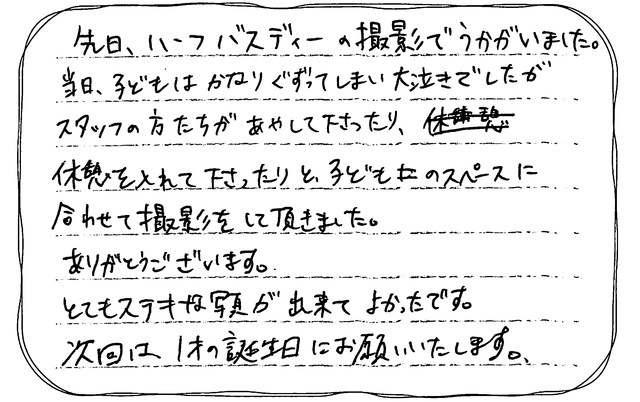 先日、ハーフバスディーの撮影でうかがいました。
当日、子どもはかなりぐずってしまい大泣きでしたが
スタッフの方たちがあやして下さったり、
休憩を入れて下さったりと、子どものペースに
合わせて撮影をして頂きました。
ありがとうございます。
とてもステキな写真が出来てよかったです。
次回は、1才の誕生日にお願いいたします。